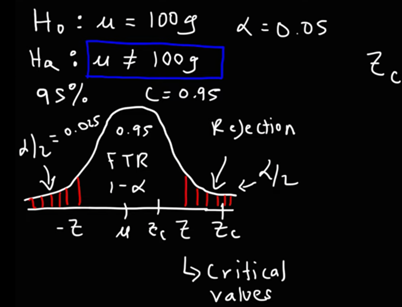 H₀ : μ = 100g
α = 0.05
Ha : μ ≠ 100g
Zc
95%
C = 0.95
α/2 = 0.025
0.95
Rejection
FTR
1-α
α/2
-Z
μ
Zc
Z
Zc
↳ Critical
values